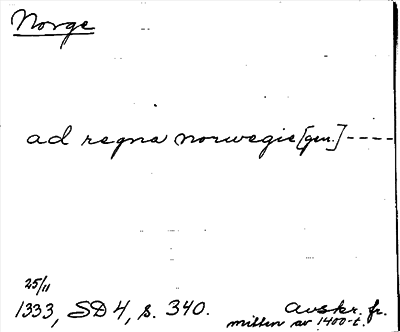 Norge
ad regna norwegie [gen.] ----
25/11
1333, SD 4, s. 340.
Avskr. fr.
mitten av 1400-t.